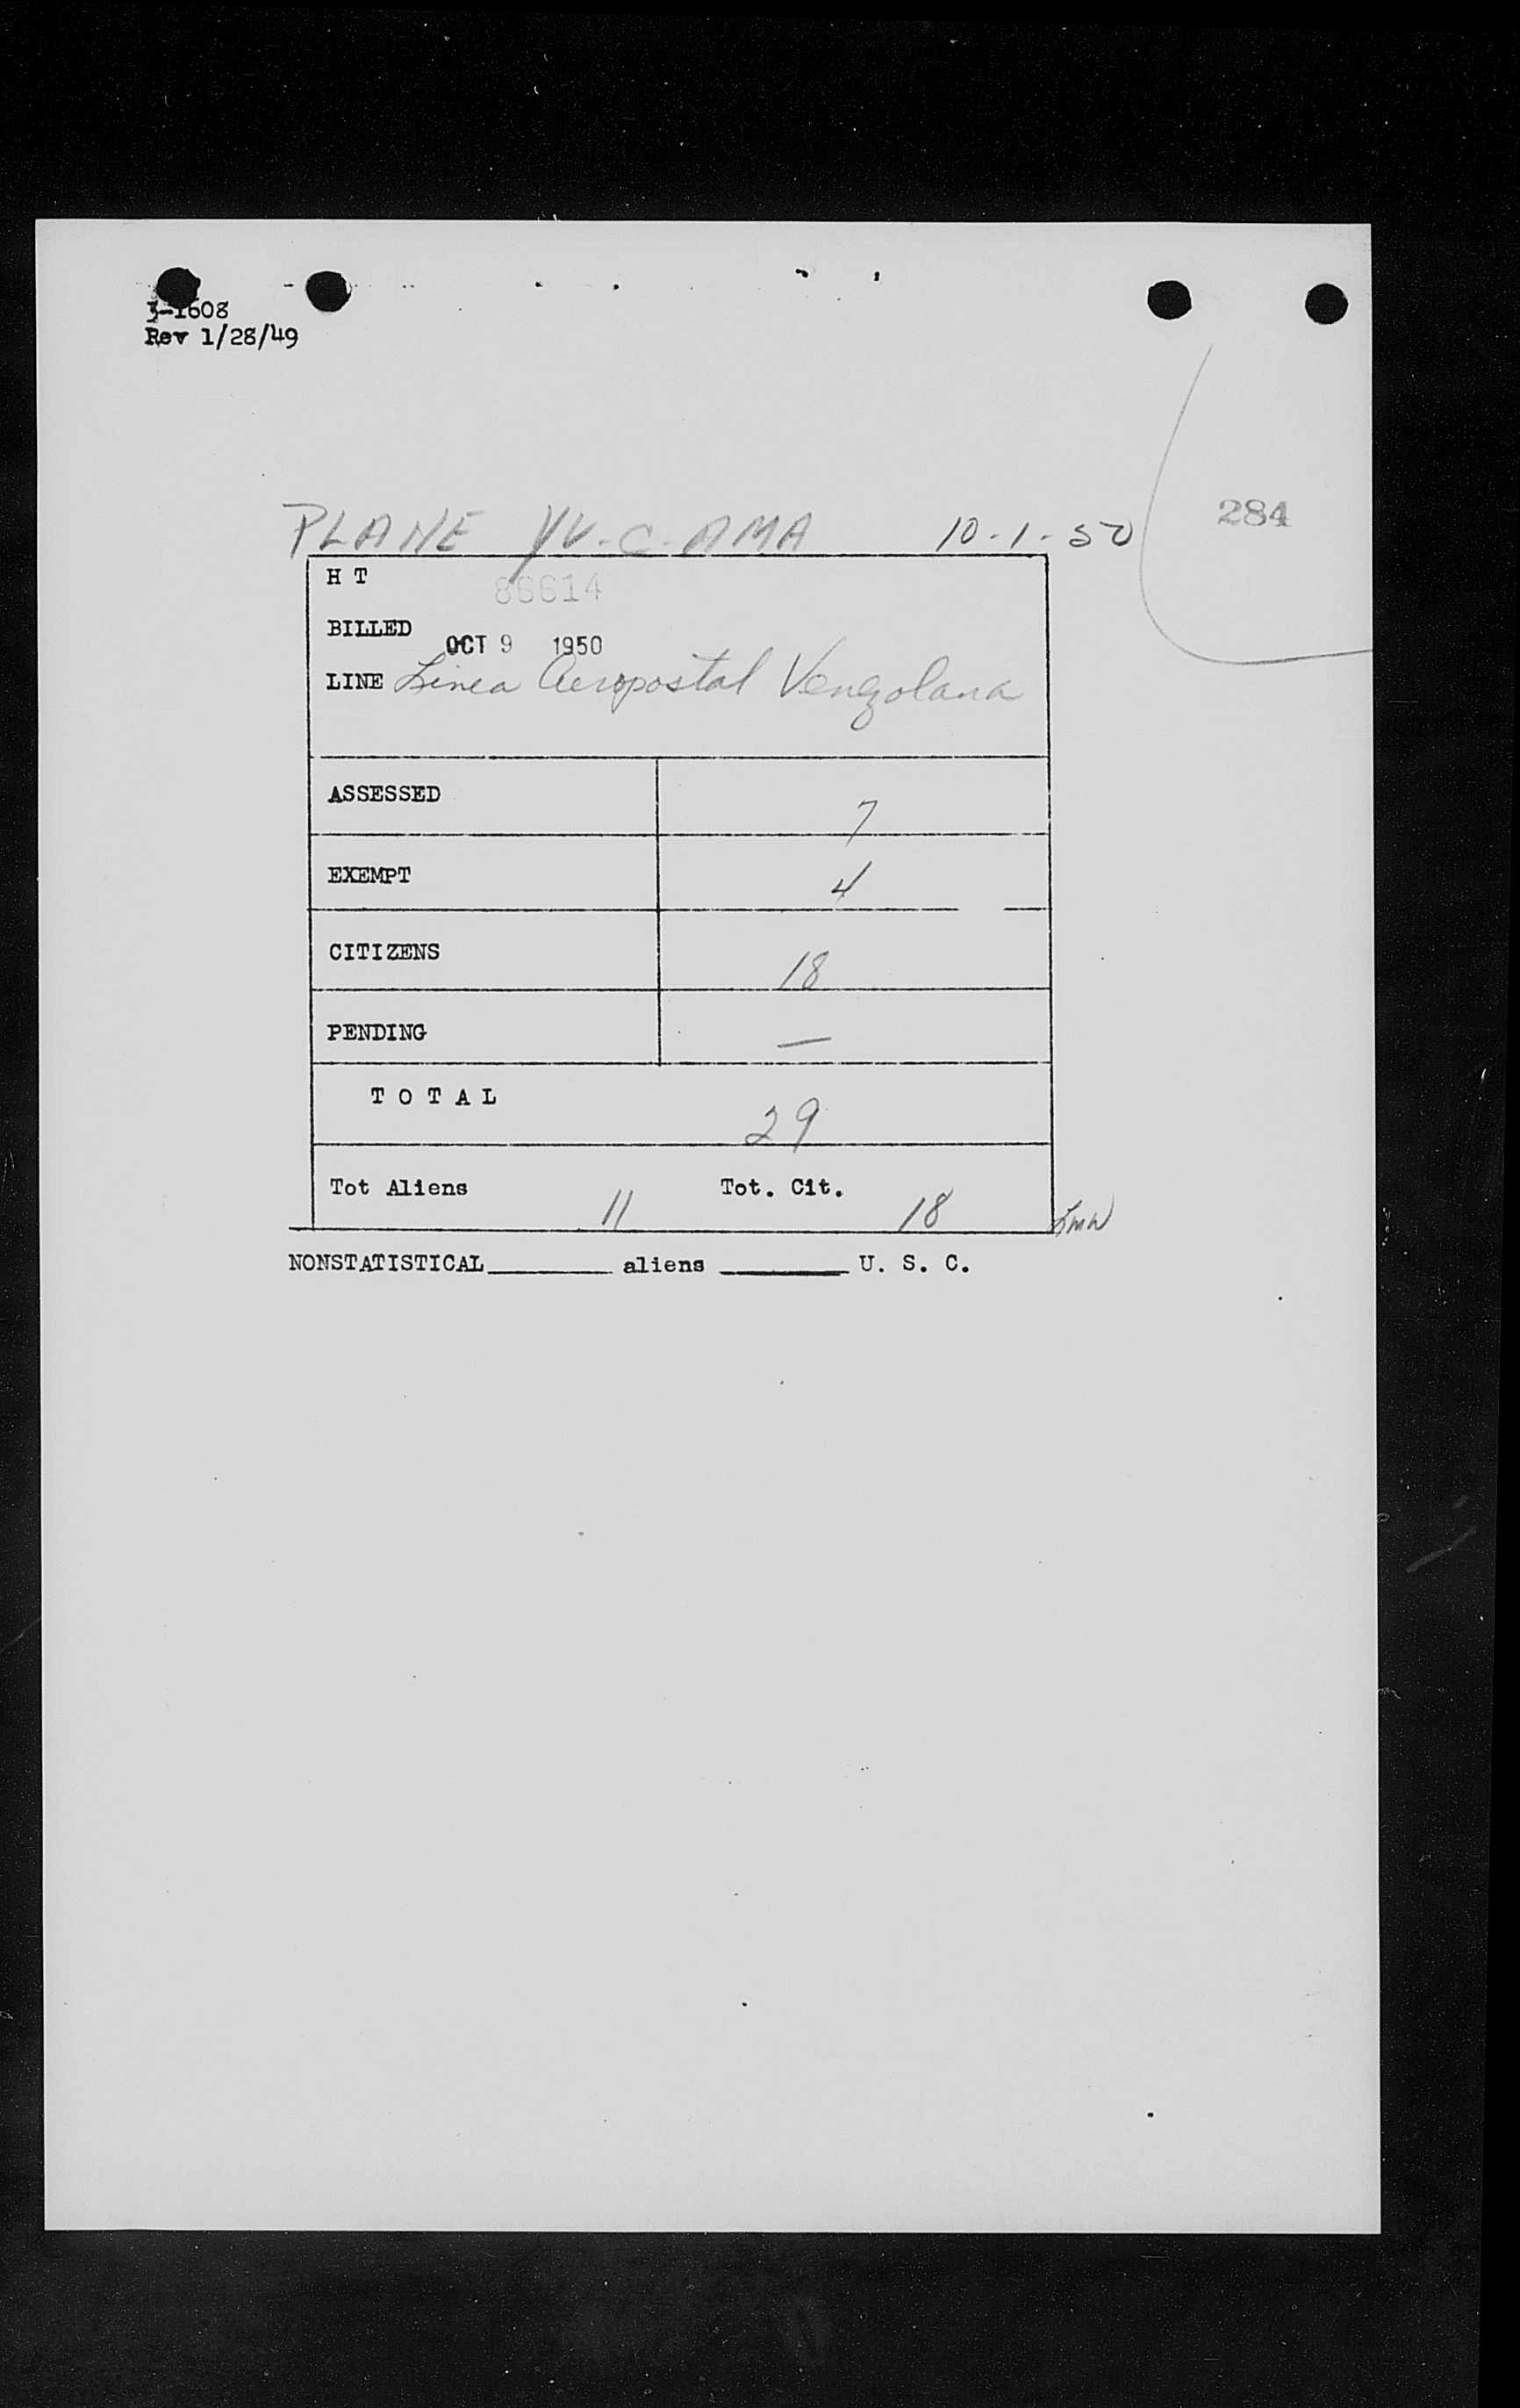 3-1608
Rev 1/28/49
284
PLANE YV-C-AMA 10-1-50
H T 86614
BILLED OCT 9 1950
LINE Linea Aeropostal Venezolana
ASSESSED 7
EXEMPT 4
CITIZENS 18
PENDING —
T O T A L 29
Tot Aliens 11 Tot. Cit. 18
NONSTATISTICAL________ aliens ________ U. S. C.